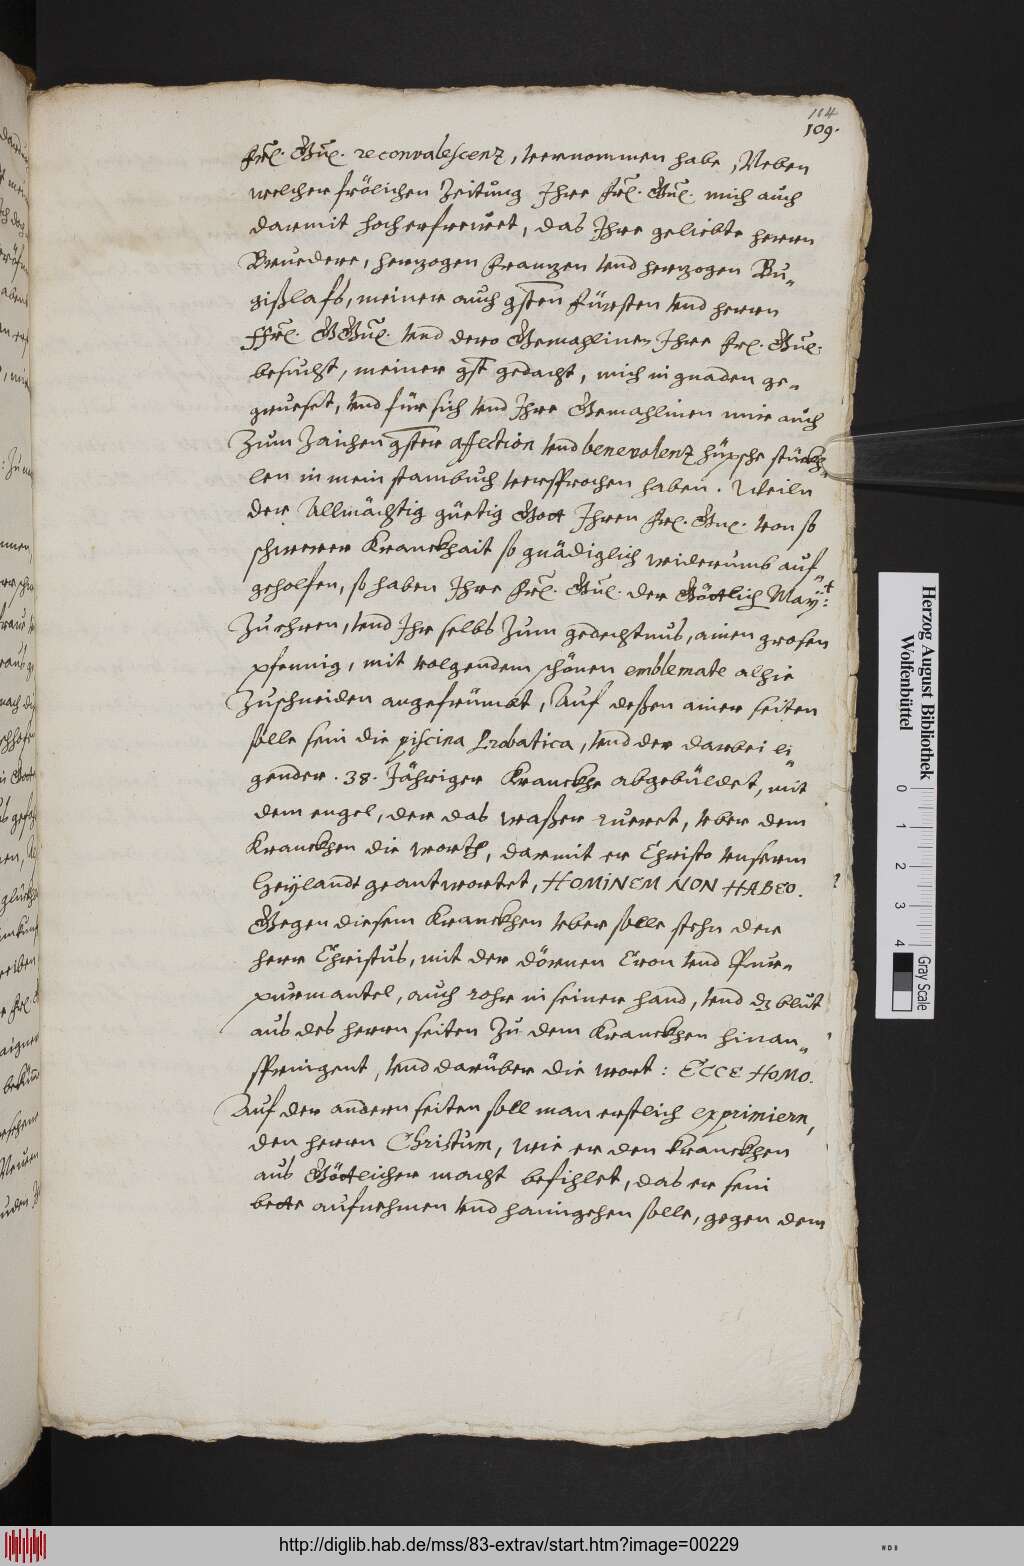 114
109.
frl. Gnl. reconvalescenz, vernommen habe, Neben
welcher frölichen Zeitung Ihre frl. Gnl. mich auch
darmit hocherfrewet, das Ihre geliebte herrn
Bruedere, herzogen Franzen vnd herzogen Bu„
gißlafs, meiner auch gsten Fürsten vnd herrn
ffrl. GGnl. vnd dero Gemahlinen Ihre frl. Gnl.
besucht, meiner gst gedacht, mich in gnaden ge„
grueset, vnd für sich vnd Ihre Gemahlinen mir auch
Zum Zaichen gster affection vnd benevolenz hüpsche stückh„
len in mein stambuch versprochen haben. Weiln
der Allmächtig güetig Gott Ihren frl. Gnl. von so
schwerer Kranckhait so gnädiglich widerumb auf„
geholfen, so haben Ihre frl. Gnl. der Göttlich Mayt:
Zu ehren, vnd Ihr selbs Zum gedechtnus, ainen grosen
pfennig, mit volgendem schönen emblemate alhie
Zuschneiden angefrümbt, Auf deßen ainer seiten
solle sein die piscina Probatica, vnd der darbei li„
gender .38. Jähriger Kranckhe abgebüldet, mit
dem engel, der das waßer rueret, vber dem
Kranckhen die worth, darmit er Christo vnserm
Heylandt geantwortet, HOMINEM NON HABEO.
Gegen diesem Kranckhen vber solle stehn der
herr Christus, mit der dörnen Cron vnd Pur„
purmantel, auch rohr in seiner hand, vnd dz blut
aus des herrn seiten Zu dem Kranckhen hinan„
springent, vnd darüber die wort: ECCE HOMO.
Auf der andern seiten soll man erstlich exprimiern,
den herrn Christum, wie er den kranckhen
aus Göttlicher macht befihlet, das er sein
bette aufnehmen vnd haimgehen solle, gegen dem
Herzog August Bibliothek
Wolfenbüttel
0 1 2 3 4
Gray Scale
http://diglib.hab.de/mss/83-extrav/start.htm?image=00229